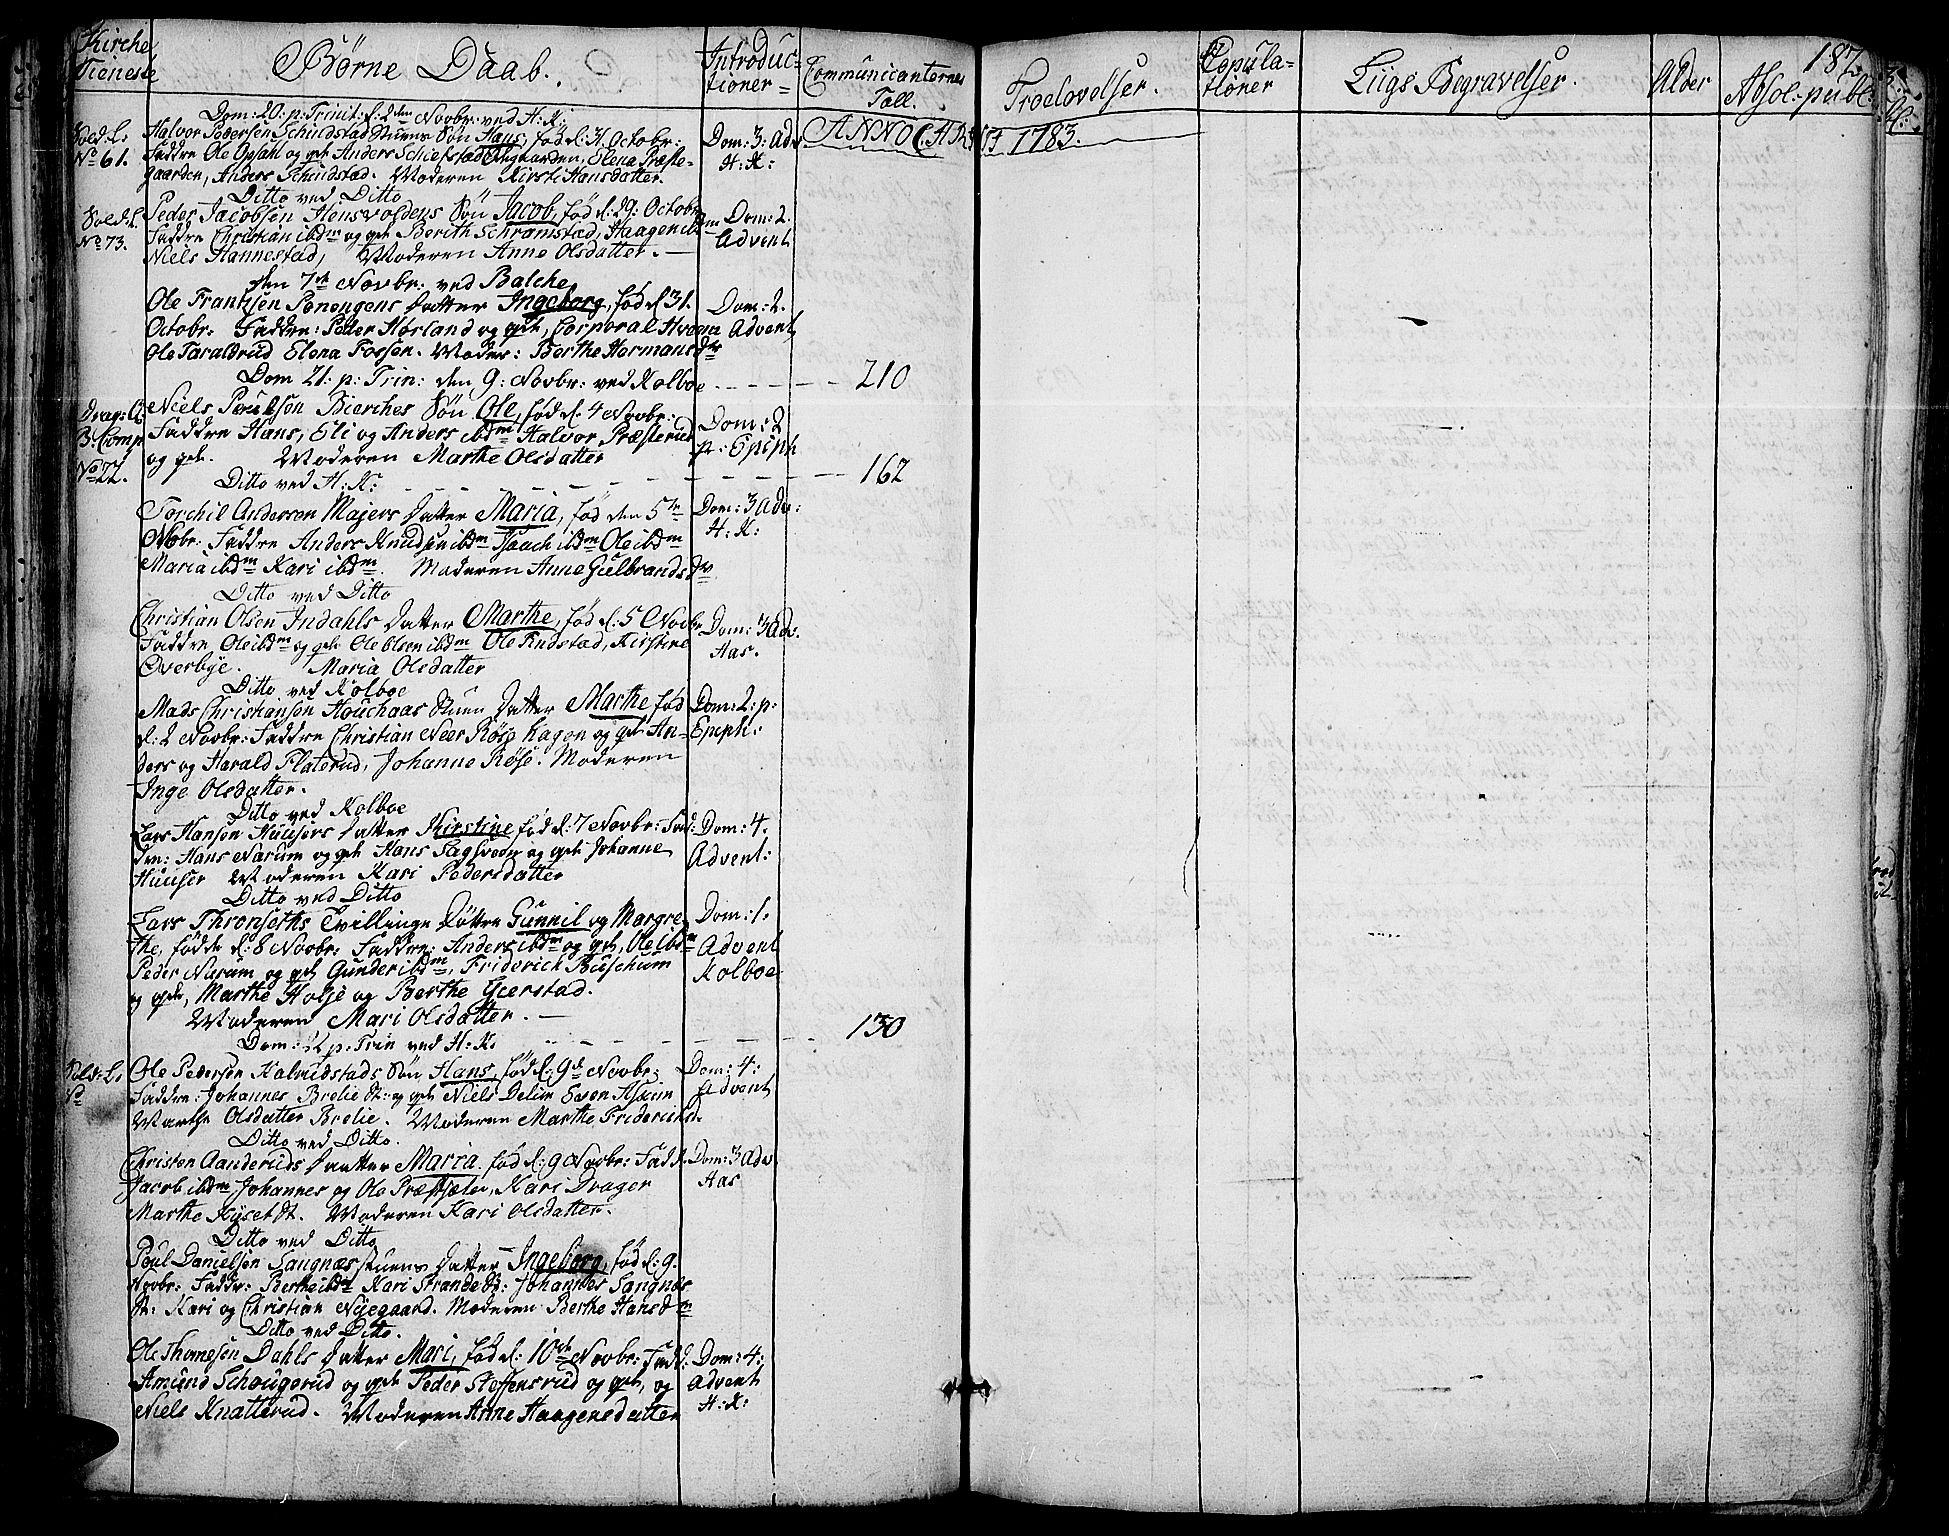 Kirche
Tieneste
Børne Daab.
Introduc-
tioner
Communicanternes
Tall.
Troelovelser.
Copula-
tioner
Liigs Begravelser.
Alder
187
Absol: publ:
ANNO CHRISTI 1783.
Dom: 20. p: Trinit: d: 2den Novbr: ved H: K:
Sold: L:
No 61.
Halvor Pedersen Schindstad Stuens Søn Hans, fød d: 31 Octobr:
Faddre Ole Opsahl og qvi Anders Schiefstad, Elena Præste-
gaarden, Anders Schindstad. Moderen Kirsti Hansdatter.
Dom: 3: Adv
H: K:
Ditto ved Ditto
Sold: L
No 73.
Peder Jacobsen Hensvoldens Søn Jacob, fød d: 29: Octobr
Faddre Christian ibdm og qvi Berith Schramstad, Haagen ibdm
Niels Hannestad, Moderen Anne Olsdatter.
Dom: 2.
Advent
den 7de Novbr: ved Balche
Ole Frantzsen Ponengens Datter Ingeborg, fød d 31.
Octobr: Faddre: Peder Hørland og qvi, Corporal Hvam
Ole Taraldrud Elena Fossen. Moder: Berthe Hermansdr
Dom: 2.
Advent
Dom 21: p: Trin: den 9: Novbr: ved Kolboe 210
Drag: G:
B: Comp
No 22.
Niels Poulsen Bierches Søn Ole, fød d. 4 Novbr:
Faddre Hans, Eli og Anders ibdm Halvor Præsterud
og qvi. Moderen Marthe Olsdatter
Dom: 2
p: Epiph
Ditto ved H: K: 162
Torchil Andersen Majers Datter Maria, fød den 5te
Novbr: Faddre Anders Knudsen ibdm Isaach ibdm Ole ibdm
Maria ibdm Kari ibdm. Moderen Anne Gulbrandsdr
Dom: 3 Adv:
H: K:
Ditto ved Ditto
Christian Olsen Indahls Datter Marthe, fød d: 5 Novbr
Faddre Ole ibdm og qvi Ole Olsen ibdm Ole Rudstad, Kirstine
Overbye. Maria Olsdatter
Dom: 3 Adv.
Aas.
Ditto ved Kolboe
Mads Christiansen Houchaas Stuen Datter Marthe fød
d: 2 Novbr: Faddre Christian Neer Røse Hagen og qvi An-
ders og Harald Flaterud, Johanne Røse. Moderen
Inge Olsdatter.
Dom: 2: p:
Epiph:
Ditto ved Kolboe
Lars Hansen Huusers Datter Kirstine fød d: 7 Novbr: Fad:
dre: Hans Narum og qvi Hans Sagsveen og qvi Johanne
Huuser Moderen Kari Pedersdatter
Dom: 4.
Advent:
Ditto ved Ditto
Lars Thronseths Tvillinge Døttre Gunnil og Margre-
the, fødde d: 8 Novbr: Faddre: Anders ibdm og qvi, Ole ibdm
Peder Narum og qvi Gunder ibdm, Friderich Buschum
og qvi, Marthe Holje og Berthe Gierstad.
Moderen Mari Olsdatter.
Dom: 1:
Advent
Kolboe
Dom: 22 p: Trin ved H: K: 130
Sold: L:
No
Ole Pedersen Kalrudstads Søn Hans, fød d: 9de Novbr:
Faddre: Johannes Brelie dt: og qvi Niels Delin Even Asium
Marthe Olsdatter Brelie. Moderen Marthe Friderichsd.
Dom: 4:
Advent
Ditto ved Ditto.
Christen Aanderuds Datter Maria. fød d: 9 Novbr: Fadd.
Jacob ibdm Johannes og Ole Præstsæter, Kari Drager
Marthe Hysetdt. Moderen Kari Olsdatter.
Dom: 3 Adv
Aas
Ditto ved Ditto
Poul Danielsen Sangnæs stuens Datter Ingeborg, fød d: 9.
Novbr: Faddr: Berthe ibdm Kari Strande dt: Johannes Sangnæs
dt: Kari og Christian Nyegaard. Moderen Berthe Hansdr
Ditto ved Ditto.
Ole Thomesen Dahls Datter Mari, fød d: 10de Novbr: Fadd:
Amund Schougerud og qvi Peder Steffensrud og qvi, og
Niels Knatterud. Moderen Anne Haagensdatter
Dom: 4:
Advent
H: K: